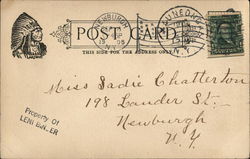 POST CARD
THIS SIDE FOR THE ADDRESS ONLY.
Miss Sadie Chatterton
198 Lander St.
Newburgh
N. Y.
Property of